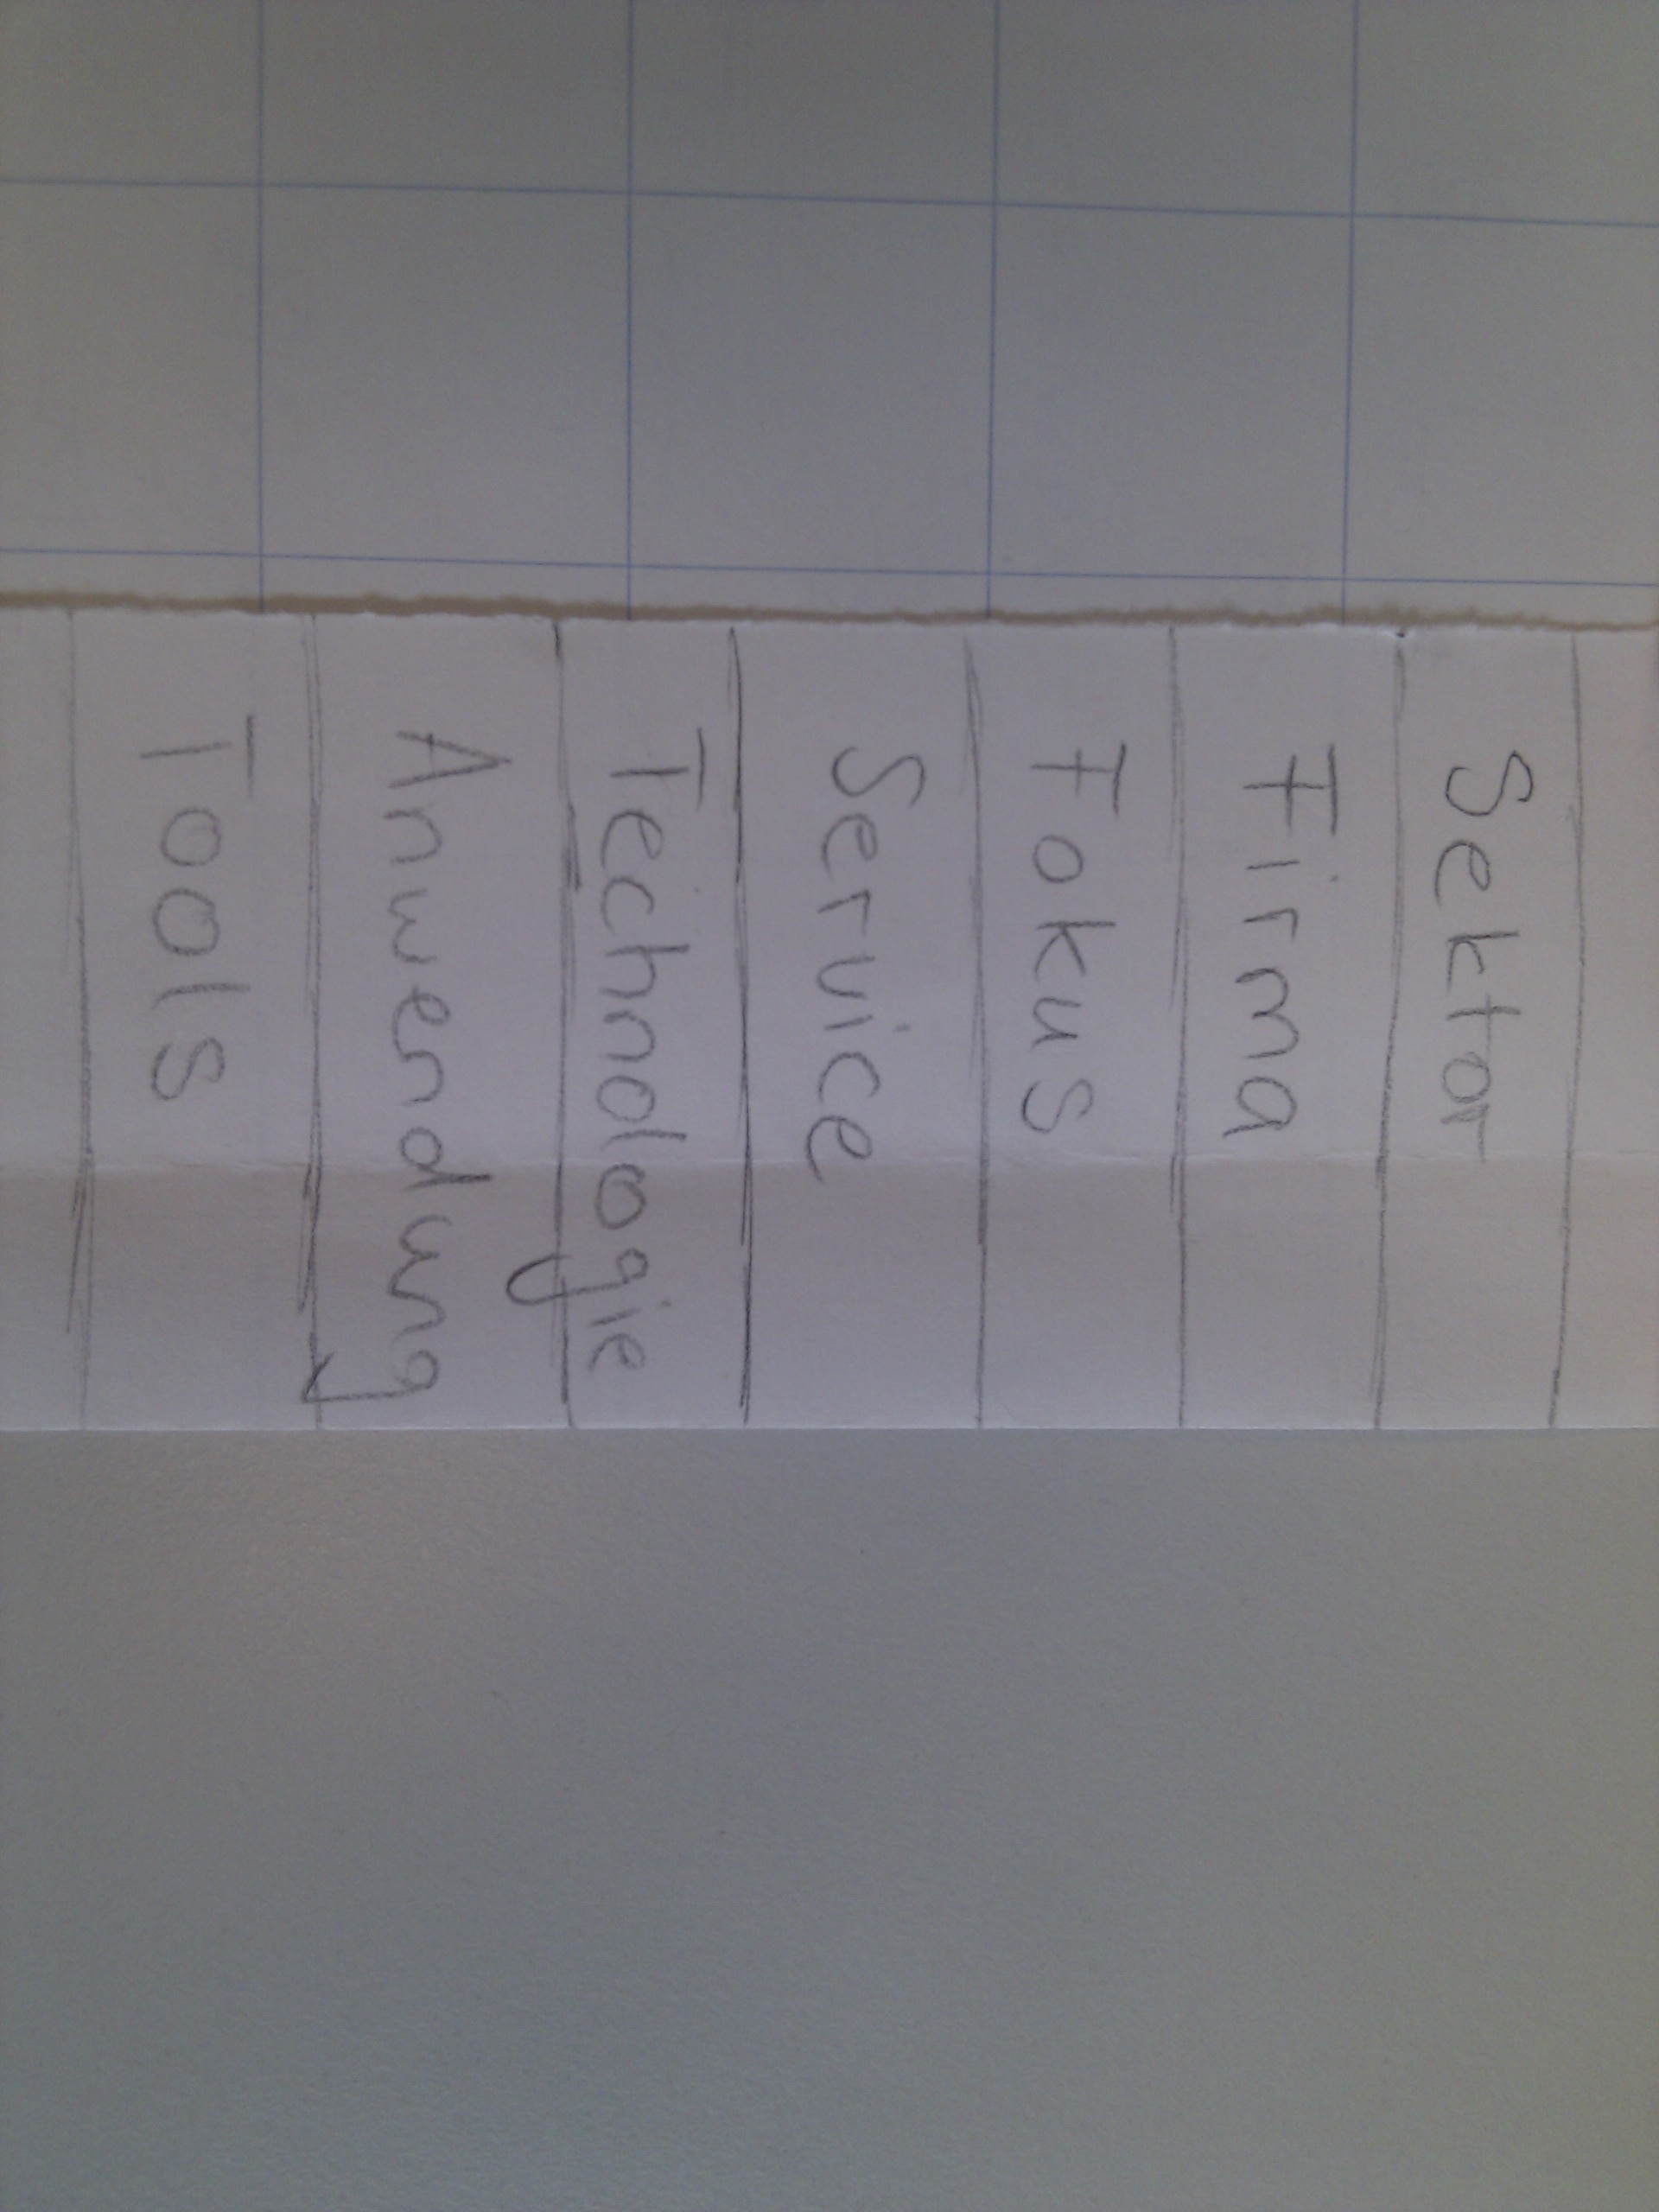 Sektor
Firma
Fokus
Service
Technologie
Anwendung
Tools